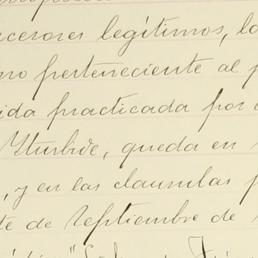 cesores legítimos, lo
no perteneciente al p
ida practicada por
Yturbide, queda en
, y en las clausulas p
te de Septiembre de